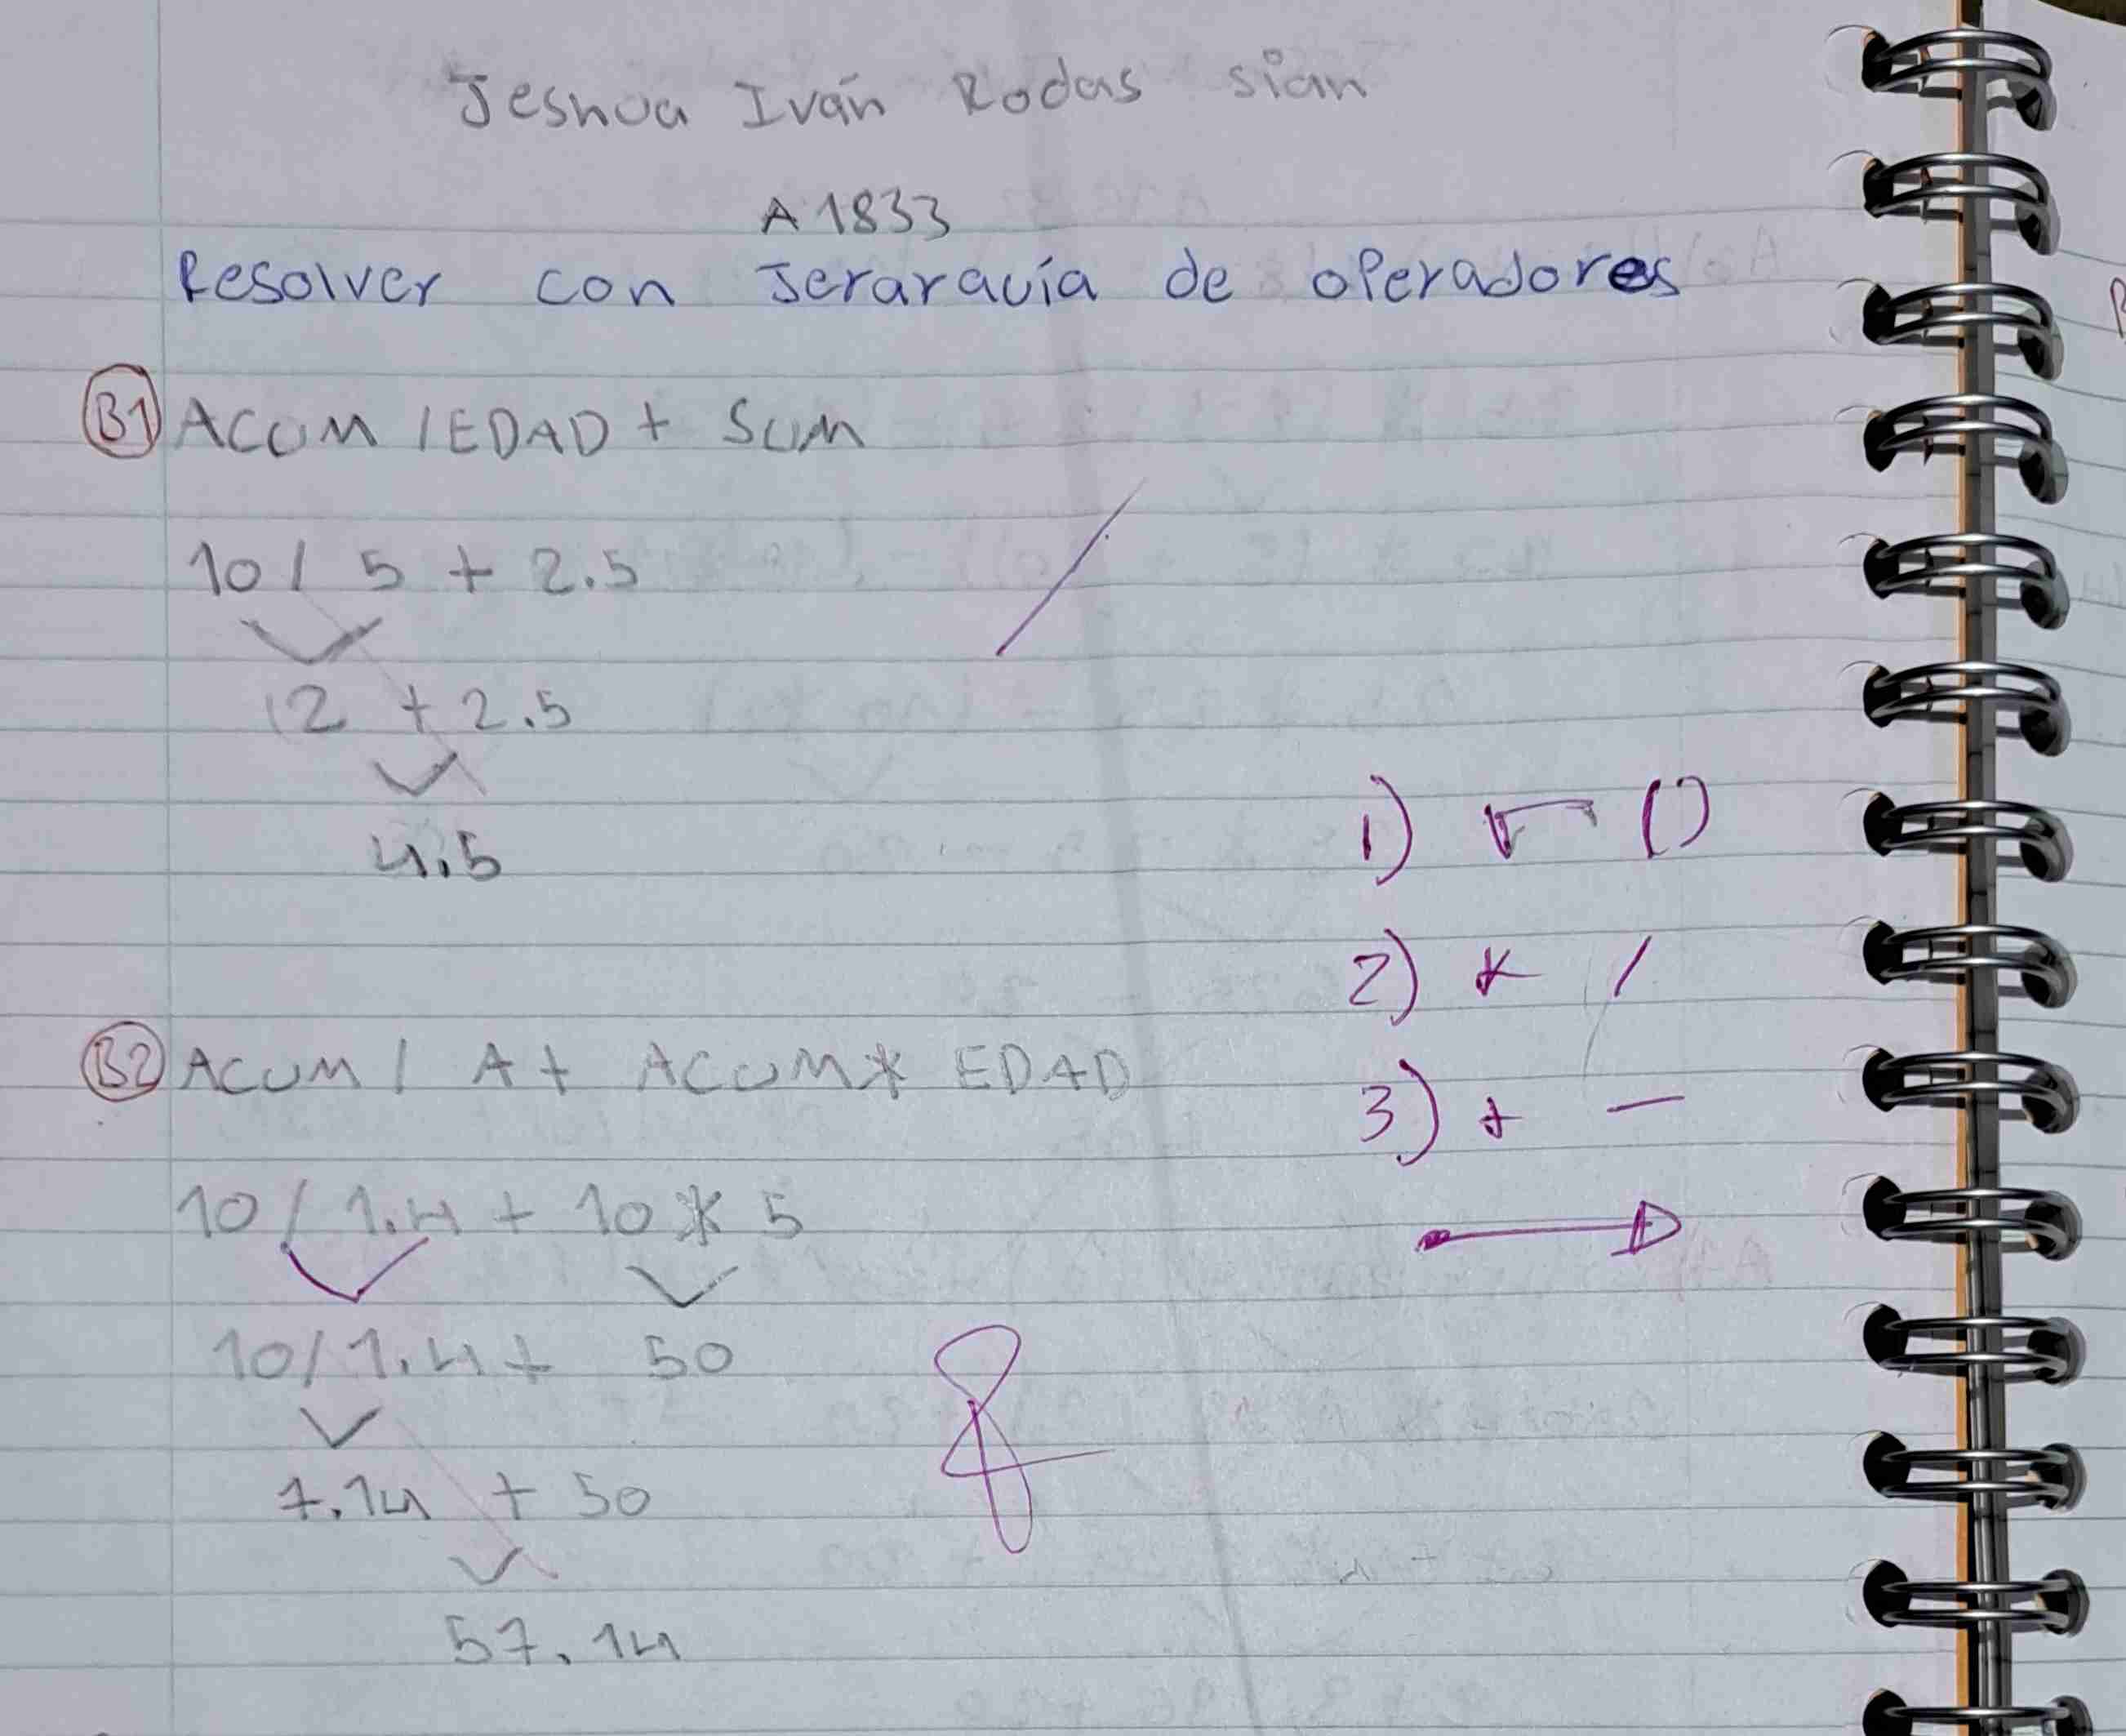 Jeshua Iván Rodas sian
A1833
Resolver con Jerarquía de operadores
B1 ACUM / EDAD + SUM
10 / 5 + 2.5
2 + 2.5
4.5
1) √ ()
2) * /
3) + -
B2 ACUM / A + ACUM * EDAD
10 / 1.4 + 10 * 5
10 / 1.4 + 50
7.14 + 50
57.14